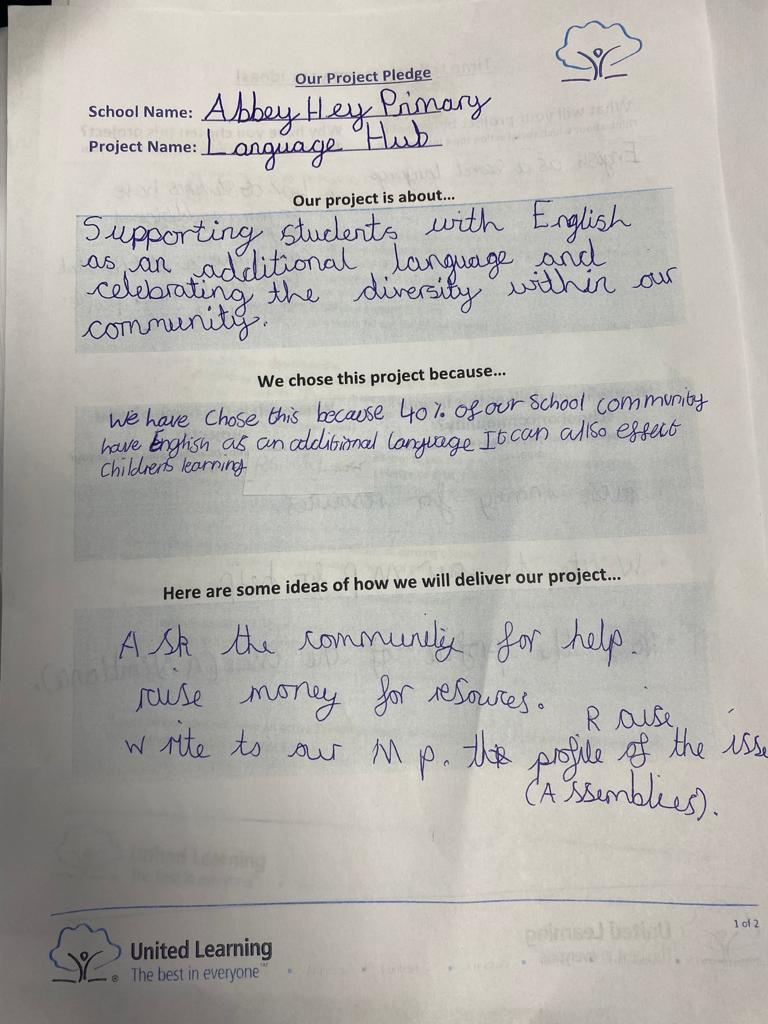 Our Project Pledge
School Name: Abbey Hey Primary
Project Name: Language Hub
Our project is about...
Supporting students with English
as an additional language and
celebrating the diversity within our
community.
We chose this project because...
We have chose this because 40% of our school community
have English as an additional language It can allso effect
Childrens learning
Here are some ideas of how we will deliver our project...
Ask the community for help.
raise money for resources.
Write to our Mp. Raise
the profile of the isse
(Assemblies).
1 of 2
United Learning
The best in everyone™